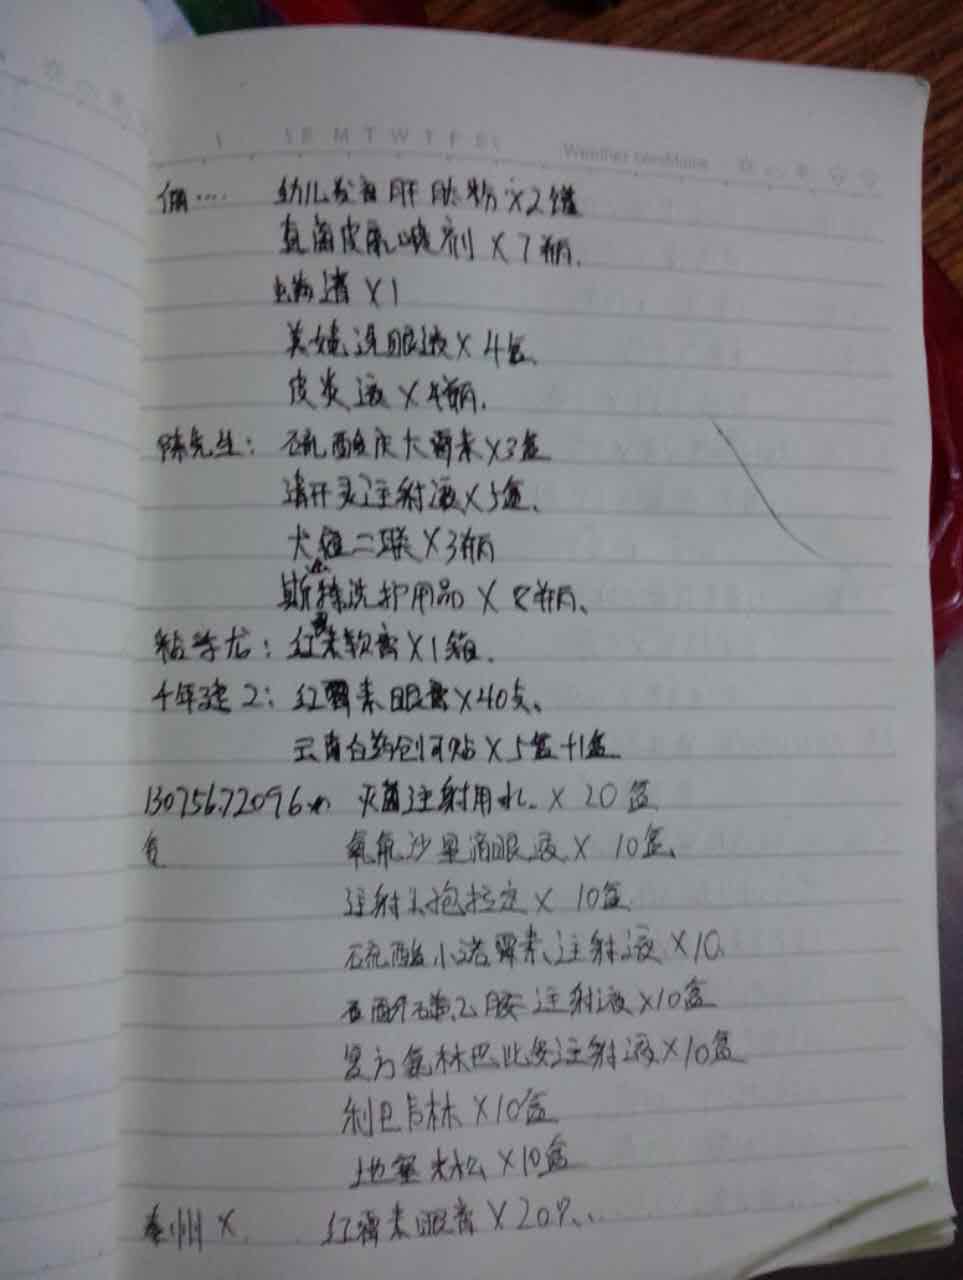 S M T W T F S
Weather
幼儿发育肝肽粉×2罐
真菌皮肤喷剂×7瓶.
×1
美婕洗眼液×4盒、
皮炎液×4瓶.
陈先生: 硫酸庆大霉素×3盒
清开灵注射液×5盒、
犬瘟二联×3瓶
斯特洗护用品×8瓶、
红霉素软膏×1箱.
千年建2: 红霉素眼膏×40支、
云南白药创可贴×5盒+1盒
13075672096 灭菌注射用水.×20盒
氧氟沙星滴眼液×10盒、
注射头孢拉定×10盒
硫酸小诺霉素注射液×10
酚磺乙胺注射液×10盒
复方氨林巴比妥注射液×10盒
利巴韦林×10盒
地塞米松×10盒
泰州× 红霉素眼膏×20